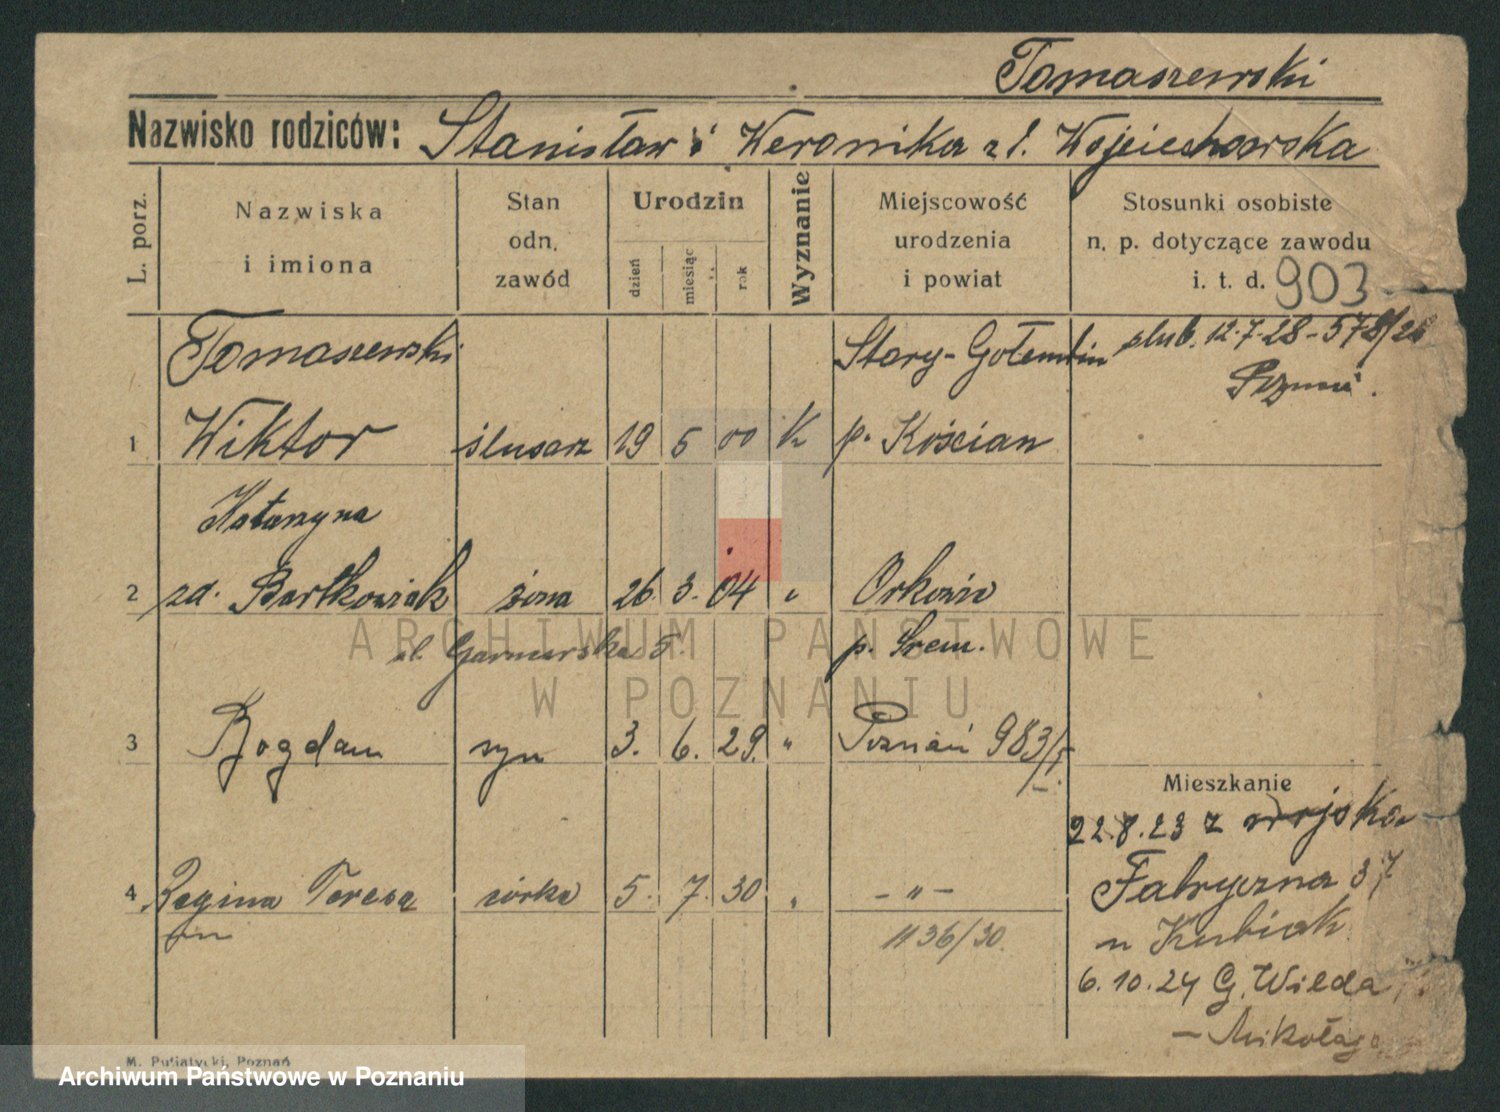 Tomaszewski
Nazwisko rodziców: Stanisław i Weronika z d. Wojciechowska
L. porz.
Nazwiska
i imiona
Stan
odn.
zawód
Urodzin
dzień
miesiąc
rok
Wyznanie
Miejscowość
urodzenia
i powiat
Stosunki osobiste
n. p. dotyczące zawodu
i. t. d. 903
Tomaszewski Stary-Gołembin ślub. 12.7.28-578/28
Poznań.
1 Wiktor ślusarz 19 5 00 K p. Kościan
Katarzyna
2 zd. Bartkowiak żona 26. 3. 04 " Orkowo
ul. Garncarska 5. p. Śrem.
3 Bogdan syn 3. 6. 29. " Poznań 983/I.
Mieszkanie
22.8.23 z wojska
Fabryczna 37
4 Regina Teresa córka 5. 7. 30 " - " -
u Kubiak
1136/30.
6.10.24 G. Wilda
- Mikołaja
M. Putiatycki, Poznań
ARCHIWUM PAŃSTWOWE
W POZNANIU
Archiwum Państwowe w Poznaniu